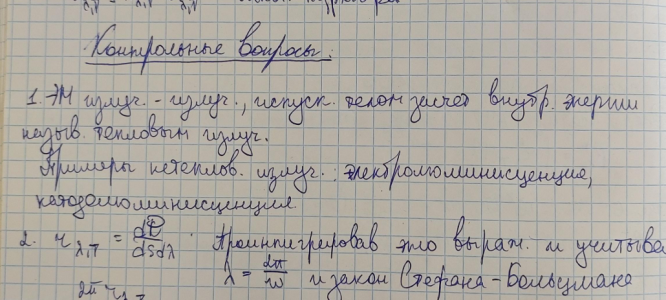 Контрольные вопросы:
1. ЭМ излуч. - излуч., испуск. телом засчет внутр. энергии
назыв. тепловым излуч.
Примеры нетеплов. излуч.: электролюминисценция,
катодолюминисценция
2. r λ,T = dФ/dsdλ. Проинтегрировав это выраж. и учитыва
λ = 2π/ω и закон Стефана-Больцмана
2π r λ,T